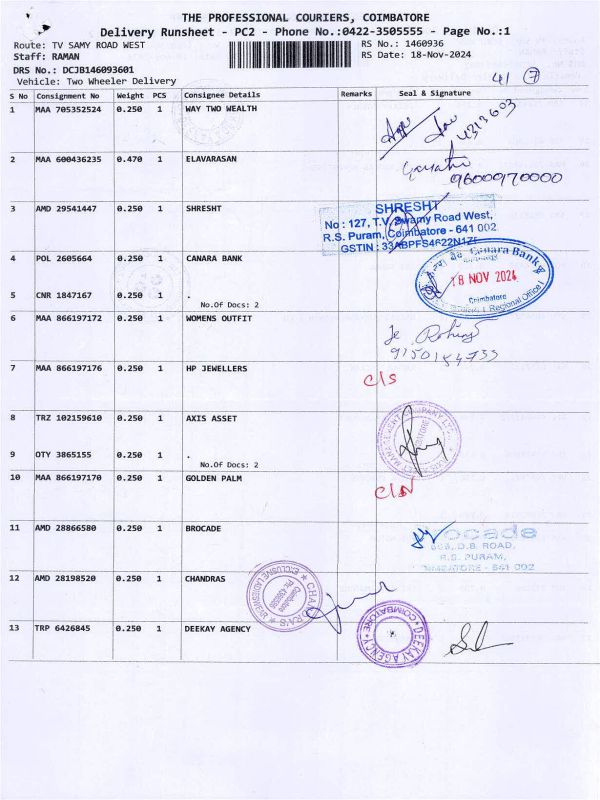 THE PROFESSIONAL COURIERS, COIMBATORE
Delivery Runsheet - PC2 - Phone No.:0422-3505555 - Page No.:1
Route: TV SAMY ROAD WEST
RS No.: 1460936
Staff: RAMAN
RS Date: 18-Nov-2024
DRS No.: DCJB146093601
Vehicle: Two Wheeler Delivery
41 7
S No Consignment No Weight PCS Consignee Details Remarks Seal & Signature
1 MAA 705352524 0.250 1 WAY TWO WEALTH
2 MAA 600436235 0.470 1 ELAVARASAN
9600970000
3 AMD 29541447 0.250 1 SHRESHT
SHRESHT
No : 127, T.V. Swamy Road West,
R.S. Puram, Coimbatore - 641 002
GSTIN : 33ABPFS4622N1ZF
4 POL 2605664 0.250 1 CANARA BANK
Canara Bank
18 NOV 2024
Coimbatore
Regional Office
5 CNR 1847167 0.250 1 .
No.Of Docs: 2
6 MAA 866197172 0.250 1 WOMENS OUTFIT
7 MAA 866197176 0.250 1 HP JEWELLERS
C/S
8 TRZ 102159610 0.250 1 AXIS ASSET
9 OTY 3865155 0.250 1 .
No.Of Docs: 2
10 MAA 866197170 0.250 1 GOLDEN PALM
C/N
11 AMD 28866580 0.250 1 BROCADE
ocade
D.B. ROAD,
R.S. PURAM,
641 002
12 AMD 28198520 0.250 1 CHANDRAS
CHANDRA'S
Coimbatore
13 TRP 6426845 0.250 1 DEEKAY AGENCY
DEEKAY AGENCY
COIMBATORE